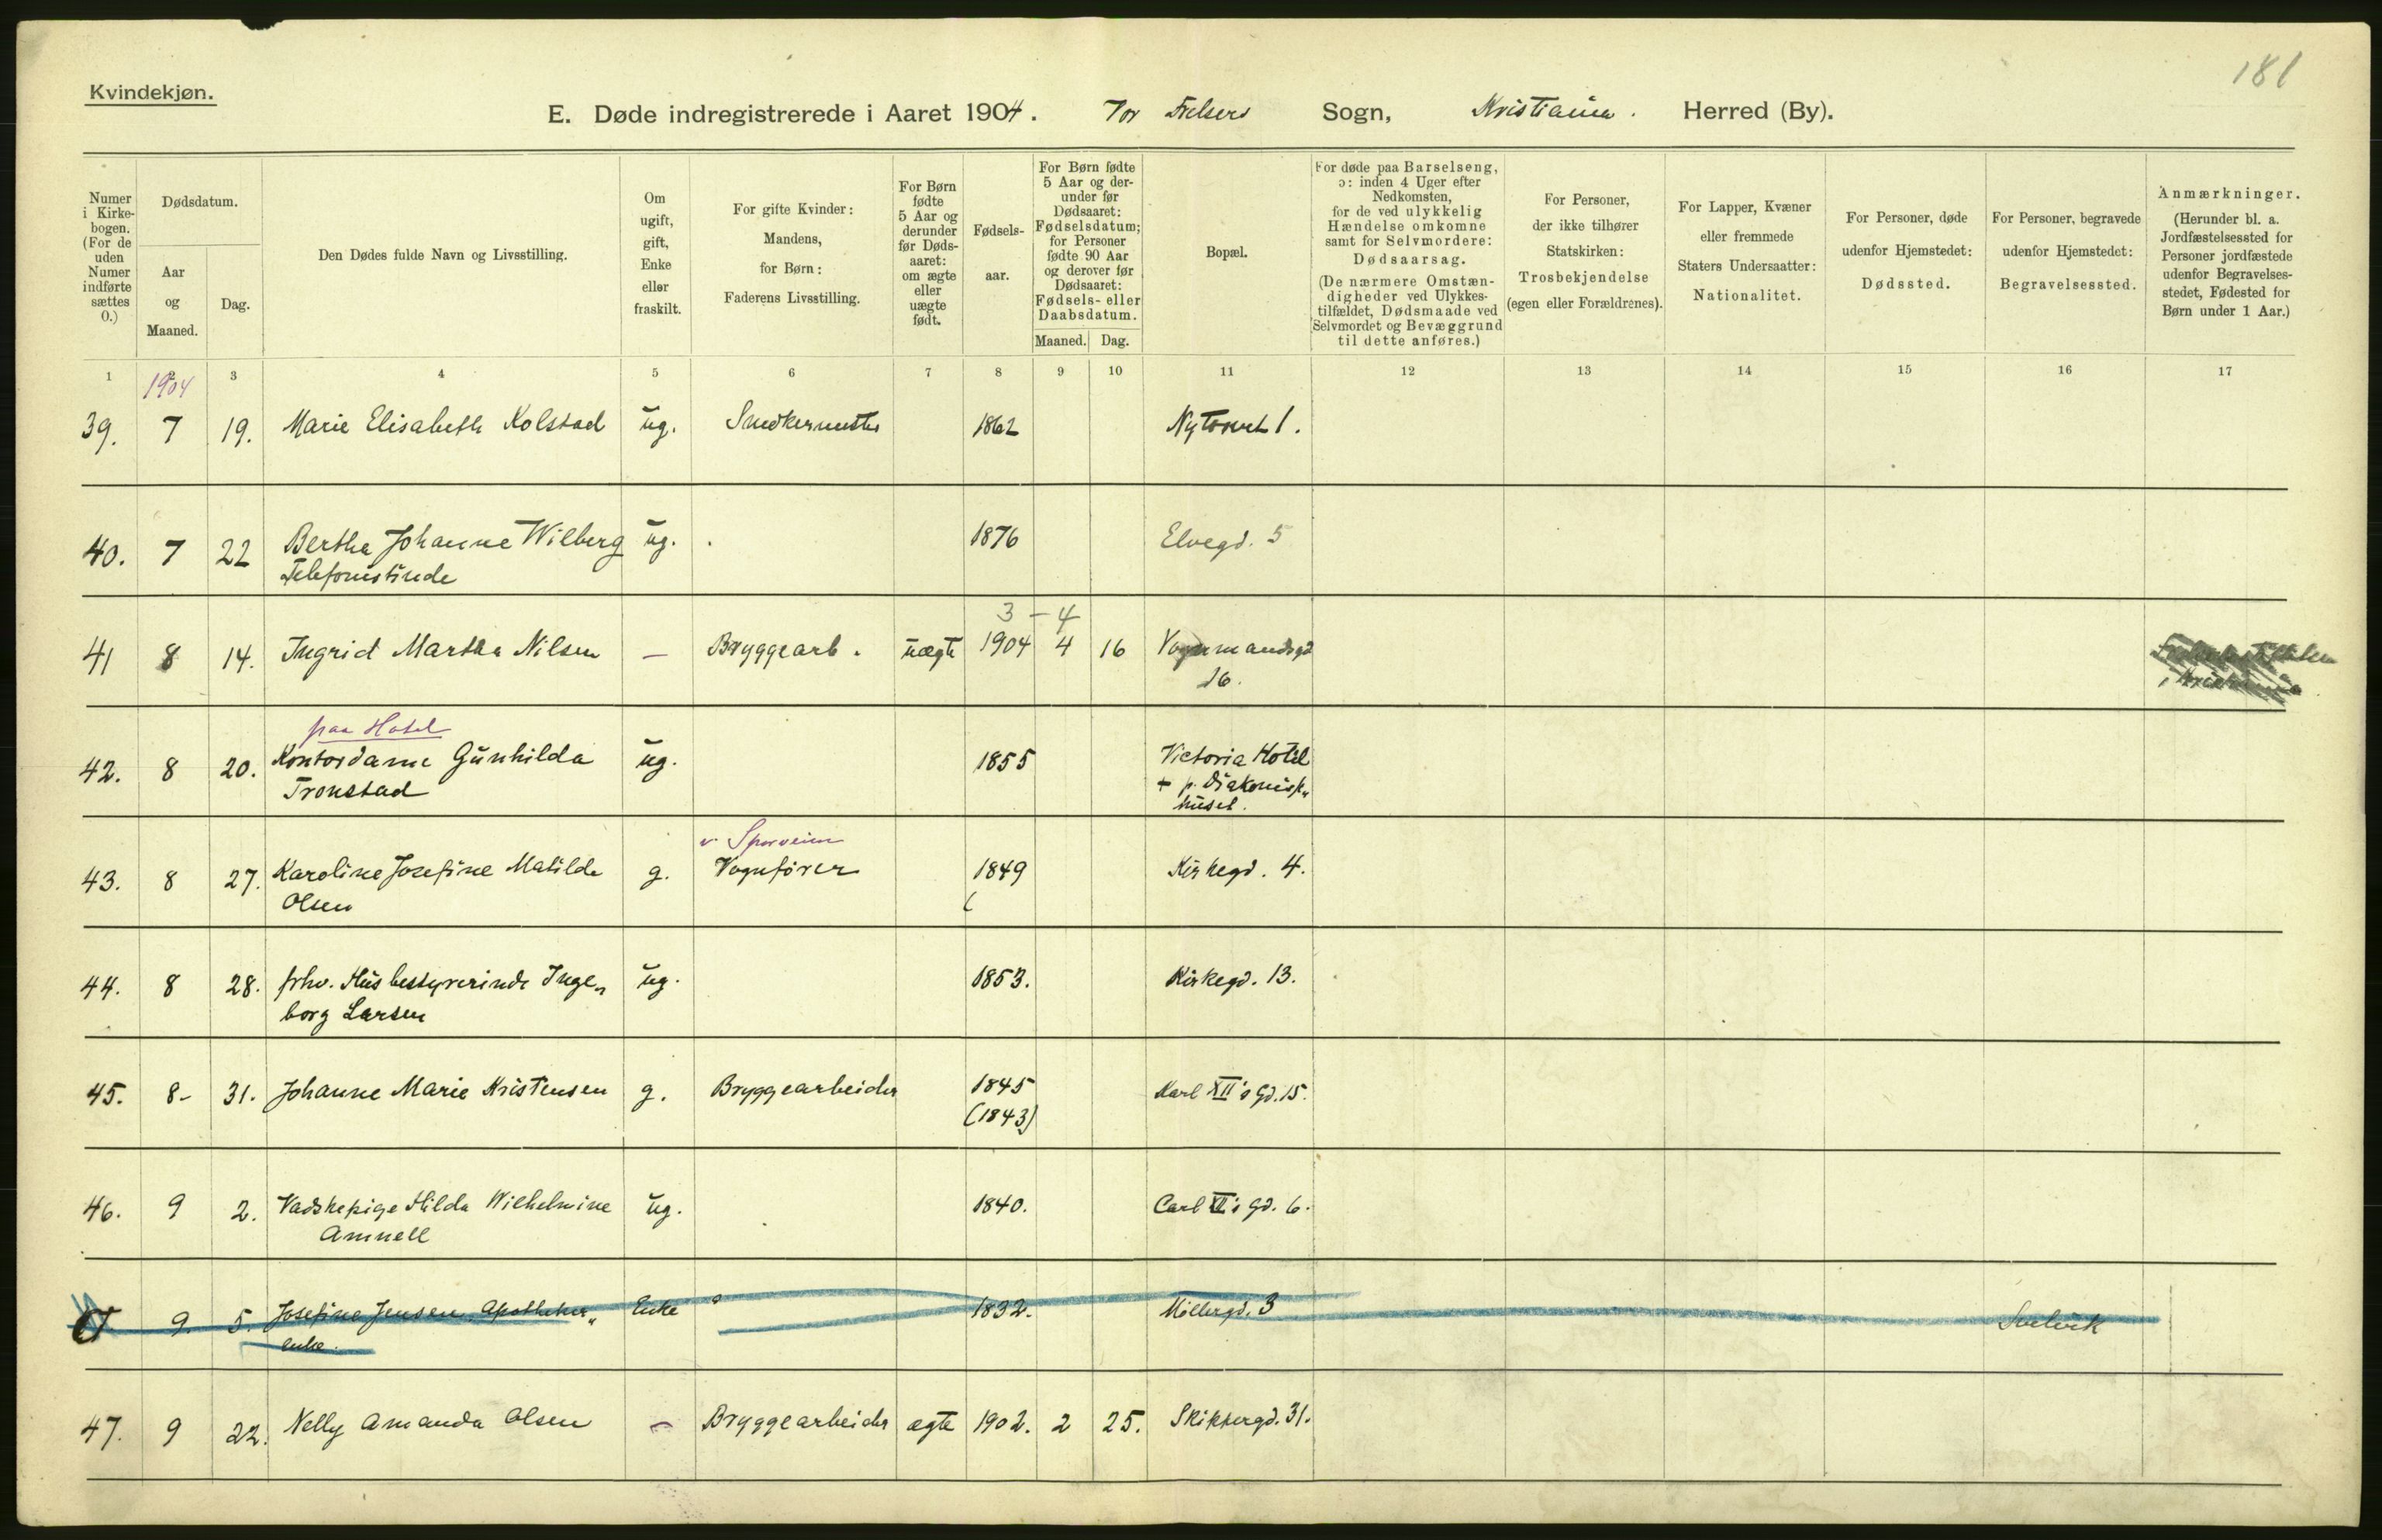 181
Kvindekjøn.
E. Døde indregistrerede i Aaret 1904. Vor Frelsers Sogn, Kristiania. Herred (By).
Numer i Kirkebogen. (For de uden Numer indførte sættes 0.)
Dødsdatum.
Aar og Maaned.
Dag.
Den Dødes fulde Navn og Livsstilling.
Om ugift, gift, Enke eller fraskilt.
For gifte Kvinder: Mandens, for Børn: Faderens Livsstilling.
For Børn fødte 5 Aar og derunder før Dødsaaret: om ægte eller uægte født.
Fødselsaar.
For Børn fødte 5 Aar og derunder før Dødsaaret: Fødselsdatum; for Personer fødte 90 Aar og derover før Dødsaaret: Fødsels- eller Daabsdatum.
Maaned. Dag.
Bopæl.
For døde paa Barselseng, ɔ: inden 4 Uger efter Nedkomsten, for de ved ulykkelig Hændelse omkomne samt for Selvmordere: Dødsaarsag. (De nærmere Omstændigheder ved Ulykkestilfældet, Dødsmaade ved Selvmordet og Bevæggrund til dette anføres.)
For Personer, der ikke tilhører Statskirken: Trosbekjendelse (egen eller Forældrenes).
For Lapper, Kvæner eller fremmede Staters Undersaatter: Nationalitet.
For Personer, døde udenfor Hjemstedet: Dødssted.
For Personer, begravede udenfor Hjemstedet: Begravelsessted.
Anmærkninger. (Herunder bl. a. Jordfæstelsessted for Personer jordfæstede udenfor Begravelsesstedet, Fødested for Børn under 1 Aar.)
1 2 3 4 5 6 7 8 9 10 11 12 13 14 15 16 17
1904
39. 7 19. Marie Elisabeth Kolstad ug. Snedkermester 1862 Nytorvet 1.
40. 7 22 Bertha Johanne Wilberg ug. 1876 Elvegd. 5
Telefonistinde
3 - 4
41 8 14. Ingrid Martha Nilsen — Bryggearb. uægte 1904 4 16 Vognmandsgd
16.
paa Hotel
42. 8 20. Kontordame Gunhilda ug. 1855 Victoria Hotel
Tronstad + p. Diakonisse
huset.
v. Sporveien
43. 8 27. Karoline Josefine Matilde g. Vognfører 1849 Kirkegd. 4.
Olsen
44. 8 28. fhv. Husbestyrerinde Inge„ ug. 1853. Kirkegd. 13.
borg Larsen
45. 8- 31. Johanne Marie Kristensen g. Bryggearbeider 1845 Karl XII's Gd. 15.
(1843)
46. 9 2. Vadskepige Hilda Wilhelmine ug. 1840. Carl XII's Gd. 6.
Amnell
9. 5. Josefine Jensen, Apotheker„ Enke 1832. Møllergd. 3 Svelvik
enke.
47. 9 22. Nelly Amanda Olsen — Bryggearbeider ægte 1902. 2 25. Skippergd. 31.